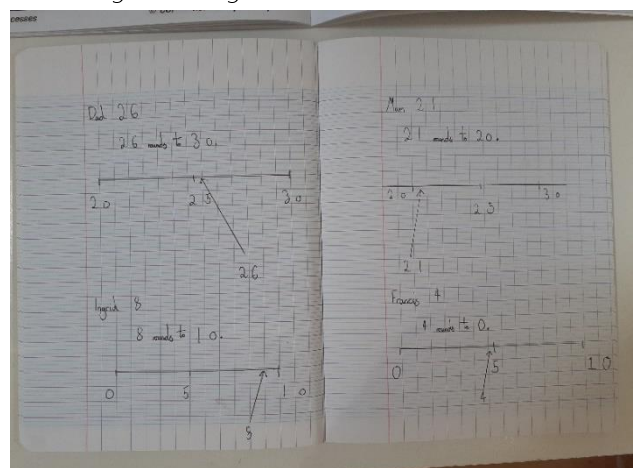 cesses
Dad 26
26 rounds to 30.
20 25 30
26
Ingrid 8
8 rounds to 10.
0 5 10
8
Mum 21
21 rounds to 20.
20 25 30
21
Frances 4
4 rounds to 0.
0 5 10
4